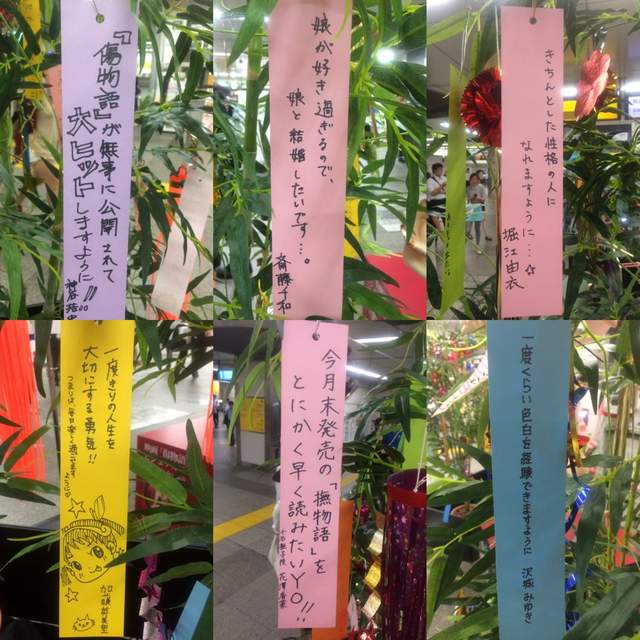 『傷物語』が無事に公開されて
大ヒットしますように!!
神谷浩史
娘が好き過ぎるので、
娘と結婚したいです…。
斎藤千和
きちんとした性格の人に
なれますように…☆
堀江由衣
一度きりの人生を
大切にする勇気!!
加藤英美里
今月末発売の『撫物語』を
とにかく早く読みたいYO!!
花澤香菜
一度くらい色白を経験できますように
沢城みゆき